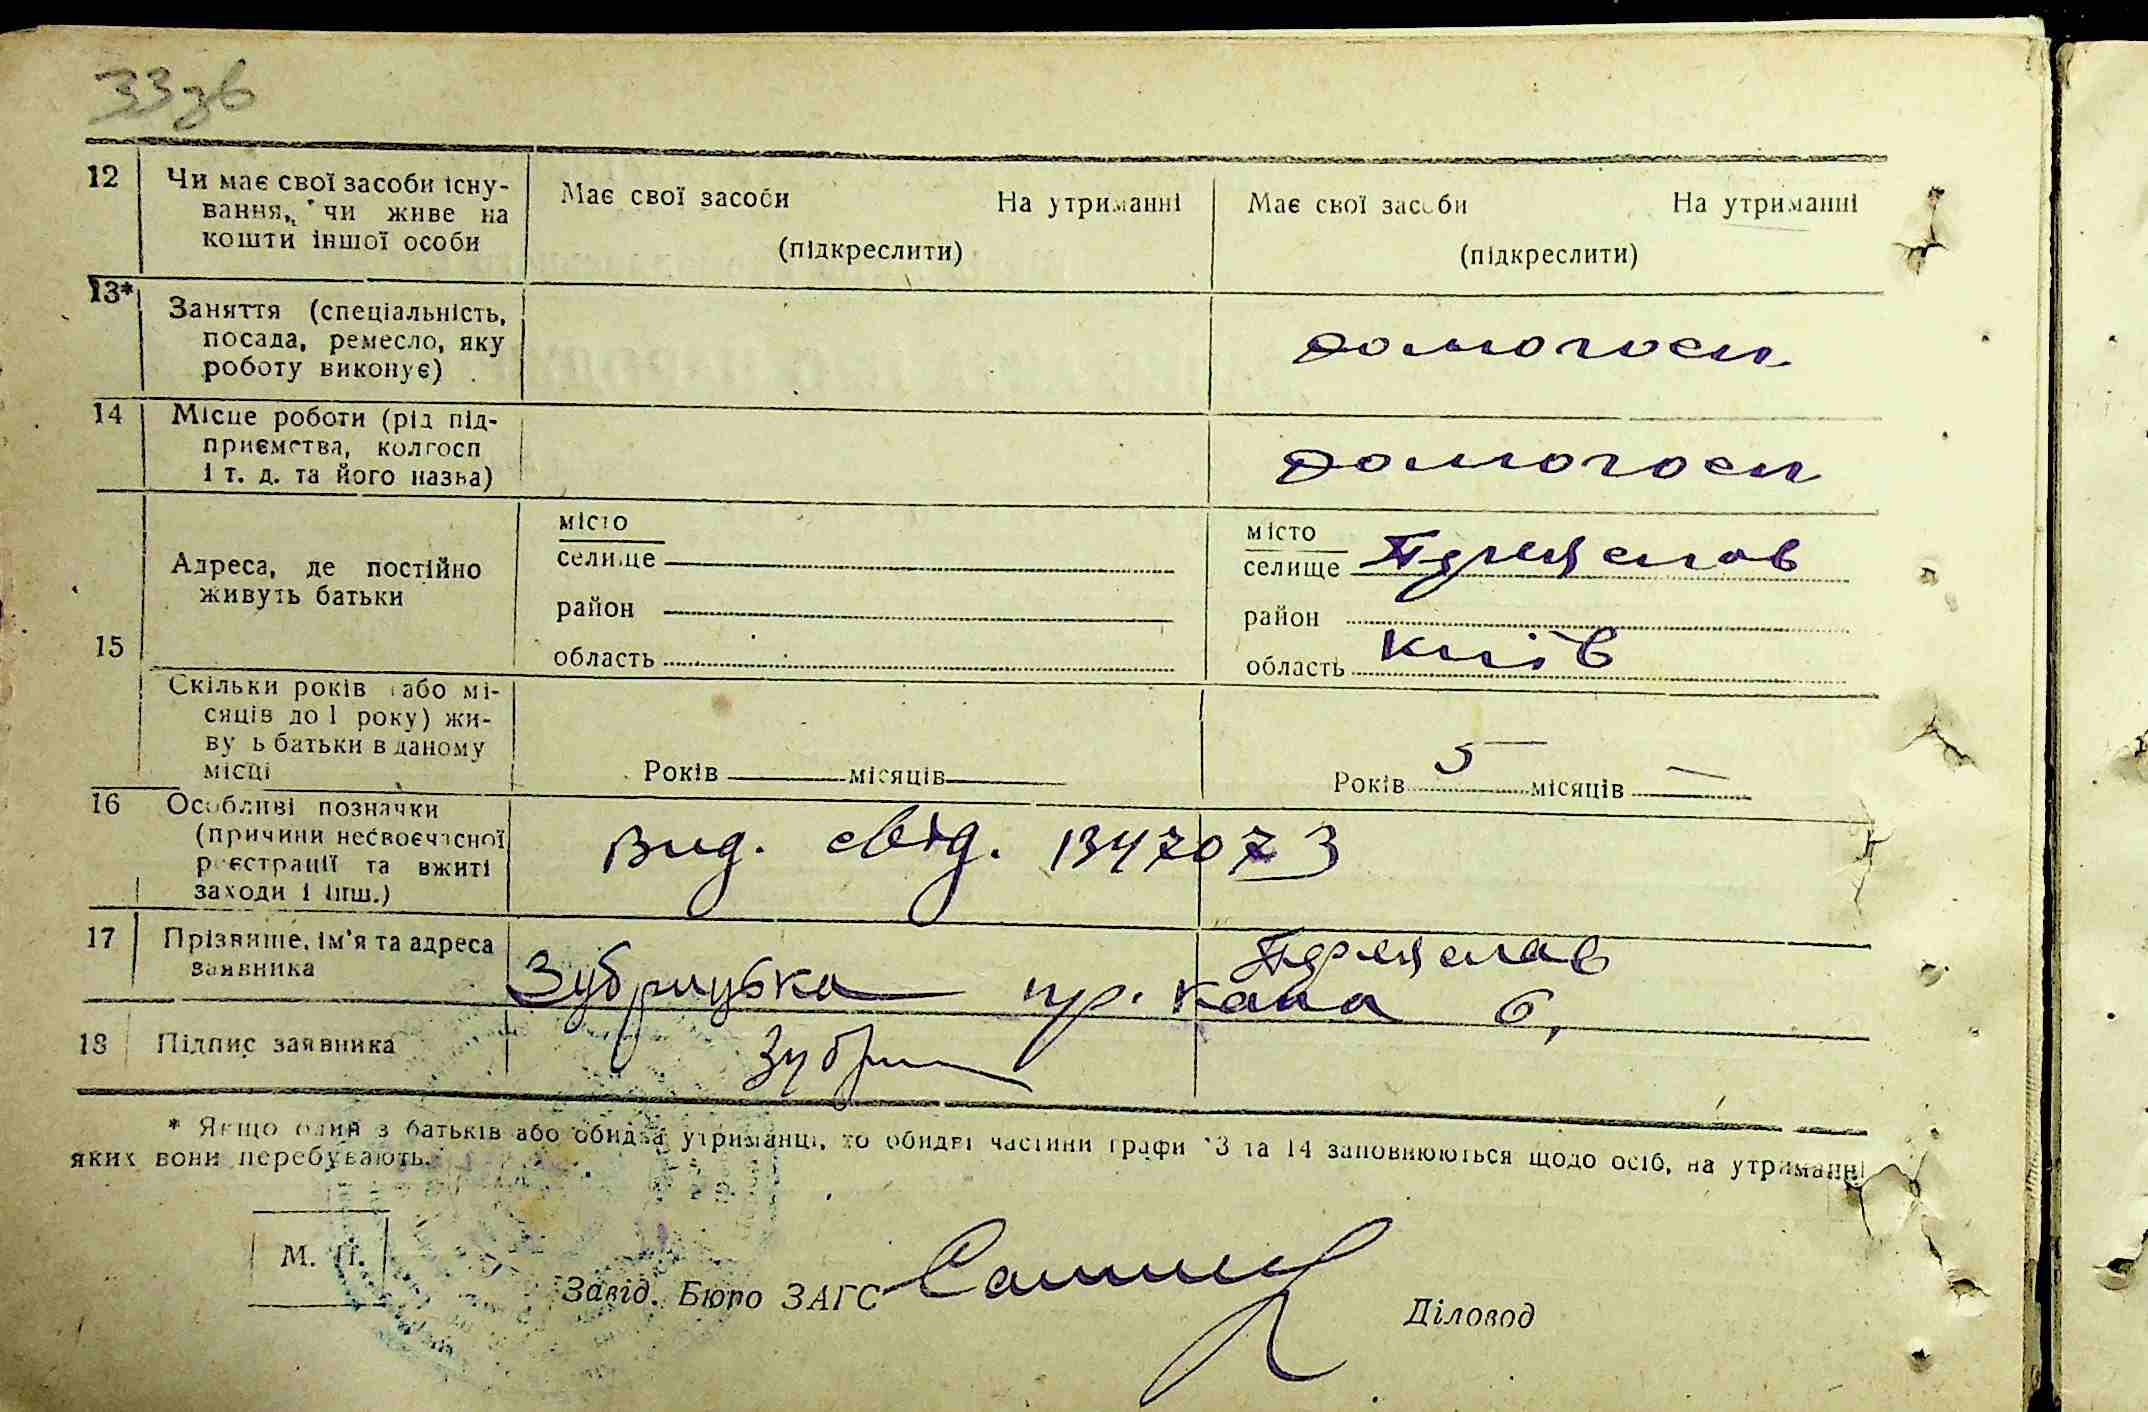 33зв
12 Чи має свої засоби існу-
вання, чи живе на
кошти іншої особи
Має свої засоби На утриманні
(підкреслити)
Має свої засоби На утриманні
(підкреслити)
13* Заняття (спеціальність,
посада, ремесло, яку
роботу виконує)
домогосп
14 Місце роботи (рід під-
приємства, колгосп
і т. д. та його назва)
домогосп
15 Адреса, де постійно
живуть батьки
місто
селище
район
область
місто
селище
район
область Київ
Скільки років (або мі-
сяців до 1 року) жи-
вуть батьки в даному
місці
Років місяців
Років 5 місяців —
16 Особливі позначки
(причини несвоєчасної
реєстрації та вжиті
заходи і інш.)
Вид. свід. 1347073
17 Прізвище, ім'я та адреса
заявника
Зубрицька пр. 6,
18 Підпис заявника
Зубри
* Якщо один з батьків або обидва утриманці, то обидві частини графи 13 та 14 заповнюються щодо осіб, на утриманні
яких вони перебувають.
М. П.
Завід. Бюро ЗАГС
Діловод